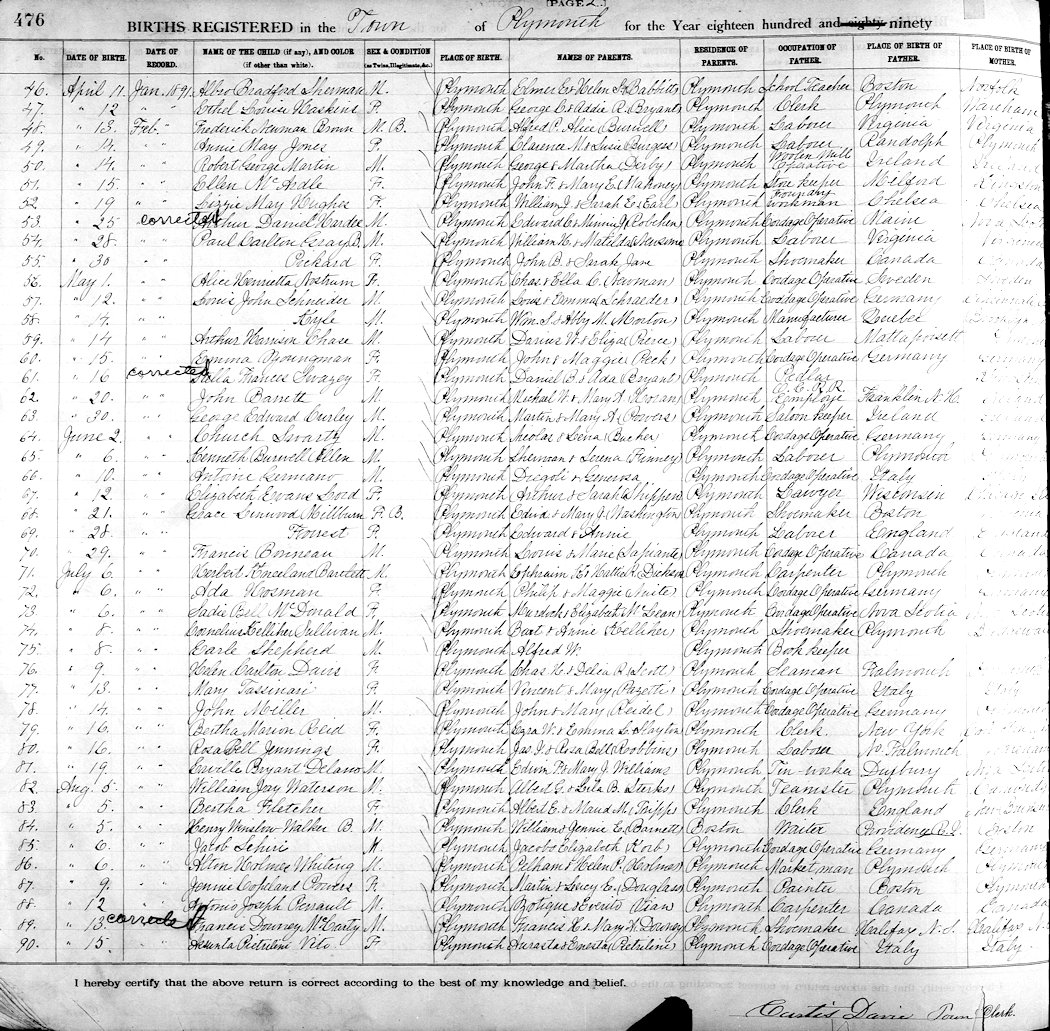 [PAGE 2.]
476
BIRTHS REGISTERED in the Town of Plymouth for the Year eighteen hundred and eighty ninety
No. DATE OF BIRTH. DATE OF RECORD. NAME OF THE CHILD (if any), AND COLOR (if other than white). SEX & CONDITION (as Twins, Illegitimate, &c.) PLACE OF BIRTH. NAMES OF PARENTS. RESIDENCE OF PARENTS. OCCUPATION OF FATHER. PLACE OF BIRTH OF FATHER. PLACE OF BIRTH OF MOTHER.
46. April 11. Jan. 1891. Bradford Sherman M. Plymouth Elmer E & Helen F. (Babbitt) Plymouth School Teacher Boston Norfolk
47. " 12 " " Ethel Louise Haskins F. Plymouth George E. & Addie R. (Bryant) Plymouth Clerk Plymouth Wareham
48. " 13. Feb. " Frederick Numan Brown M. B. Plymouth Alfred P. Alice (Burwell) Plymouth Laborer Virginia Virginia
49. " 14. " " Annie May Jones F. Plymouth Clarence M & Susie (Burges) Plymouth Laborer Randolph Plymouth
50. " 14. " " Robert George Martin M. Plymouth George & Martha (Derby) Plymouth Woolen Mill Operative Ireland
51. " 15. " " Ellen McArdle F. Plymouth John F. & Mary E. (Mahoney) Plymouth Store keeper Milford Kingston
52. " " " Lizzie May Hughes F. Plymouth William J & Sarah E. (Earl) Plymouth Foundry workman Chelsea Chelsea
53. " 25 corrected Arthur Daniel M. Plymouth Edward C & Minnie Plymouth Cordage Operative Maine
54. " 28. " " Paul Carlton Gray B. M. Plymouth William H. & Matilda (Newsome) Plymouth Laborer Virginia
55. " 30 " " Peckard F. Plymouth John B. & Sarah Jane Plymouth Shoemaker Canada
56. May 1. " " Alice Henrietta Nostrum F. Plymouth Chas. & Ella C. (Newman) Plymouth Cordage Operative Sweden
57. " 12. " " Louis John Schneider M. Plymouth Louis & Emma (Schraeder) Plymouth Cordage Operative Germany
58. " 14. " " Hyse M. Plymouth Wm. S. & Abby M. Morton) Plymouth Manufacturer Quebec
59. " 14 " " Arthur Harrison Chase M. Plymouth Darius W. & Eliza (Pierce) Plymouth Laborer Mattapoisett
60. " 15. " " Emma Youngman F. Plymouth John & Maggie (Peck) Plymouth Cordage Operative Germany
61. " 16 corrected Stella Frances Swazey F. Plymouth Daniel B. & Ada (Bryant) Plymouth Pedlar
62. " 20. " " John Barrett M. Plymouth Michael W. & Mary A. (Horan) Plymouth O. C. R. R. Employe Franklin N. H.
63. " 30. " " George Edward Curley M. Plymouth Martin & Mary A. (Powers) Plymouth Saloon keeper Ireland
64. June 2. " " Church Swartz M. Plymouth Nicolas & Lena (Bucher) Plymouth Cordage Operative Germany
65. " 6. " " Kenneth Burwell Ellen M. Plymouth Sherman & Serena (Finney) Plymouth Laborer Plymouth
66. " 10. " " Antoine Germano M. Plymouth Diegoli & Generosa Plymouth Cordage Operative Italy
67. " 12. " " Elizabeth Evans Lord F. Plymouth Arthur & Sarah (Shippen) Plymouth Lawyer Wisconsin
68. " 21. " " Grace Linwood Millburn F. B. Plymouth Edwd & Mary J. (Washington) Plymouth Shoemaker Boston
69. " 28. " " Forrest F. Plymouth Edward & Annie Plymouth Laborer England
70. " 29. " " Francis Bonneau M. Plymouth Louis & Marie (Sapiante) Plymouth Cordage Operative Canada
71. July 6. " " Herbert Kneeland Bartlett M. Plymouth Ephraim & Hattie R. Dickson Plymouth Carpenter Plymouth
72. " 6. " " Ada Hosman F. Plymouth Philip & Maggie (Nuite) Plymouth Cordage Operative Germany
73. " 6. " " Sadie Bell McDonald F. Plymouth Murdoch & Elizabeth McLean) Plymouth Cordage Operative Nova Scotia
74. " 8. " " Cornelius Kelliher Sullivan M. Plymouth Bart & Annie (Kelliher) Plymouth Shoemaker Plymouth
75. " 8. " " Earle Shepherd M. Plymouth Alfred W. Plymouth Book keeper
76. " 9. " " Helen Carlton Davis F. Plymouth Chas. H. & Delia R. (Scott) Plymouth Seaman Falmouth
77. " 13. " " Mary Tassinari F. Plymouth Vincent & Mary (Pazette) Plymouth Cordage Operative Italy Italy
78. " 14. " " John Miller M. Plymouth John & Mary (Reidel) Plymouth Cordage Operative Germany
79. " 16. " " Bertha Marion Reid F. Plymouth Ezra W. & Emma L. (Slayton) Plymouth Clerk. New York
80. " 16. " " Rosa Bell Jennings F. Plymouth Jas. J. & Rosa Bell (Robbins) Plymouth Laborer No. Falmouth
81. " 19. " " Bryant Delano M. Plymouth Edwin F. & Mary J. Williams Plymouth Tin-worker Duxbury
82. Aug. 5. " " William Jay Waterson M. Plymouth Albert G. & Lula B. (Sterks) Plymouth Teamster Plymouth
83. " 5. " " Bertha Fletcher F. Plymouth Albert E. & Maud M. (Tripp) Plymouth Clerk England
84. " 5. " " Henry Winslow Walker B. M. Plymouth William & Jennie E. (Barnett) Boston Waiter Providence R. I. Boston
85. " 6. " " Jacob Sehiri M. Plymouth Jacob & Elizabeth (Korb) Plymouth Cordage Operative Germany Germany
86. " 6. " " Alton Holmes Whiting M. Plymouth Pelham & Helen P. (Holmes) Plymouth Marketman Plymouth Plymouth
87. " 9. " " Jennie Copeland Powers F. Plymouth Martin & Lucy E. (Douglass) Plymouth Painter Boston Plymouth
88. " 12 " " Antonio Joseph Perrault M. Plymouth Plymouth Carpenter Canada Canada
89. " 13. corrected Francis Downey McCarty M. Plymouth Francis H. & Mary W. (Downey) Plymouth Shoemaker Halifax N. S. Halifax N. S.
90. " 15. " " Assunta Petriline Vito F. Plymouth & Ernesta (Petriline) Plymouth Cordage Operative Italy Italy
I hereby certify that the above return is correct according to the best of my knowledge and belief.
Curtis Davie Town Clerk.